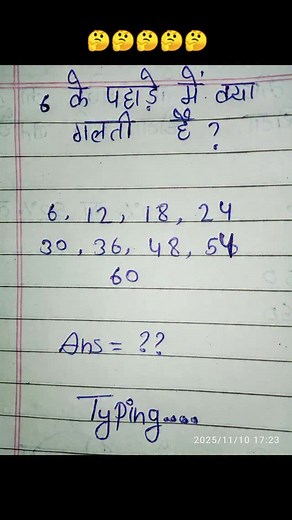 🤔🤔🤔🤔🤔
6 के पहाड़े में क्या
गलती है ?
6, 12, 18, 24
30, 36, 48, 54
60
Ans = ??
Typing....
2025/11/10 17:23